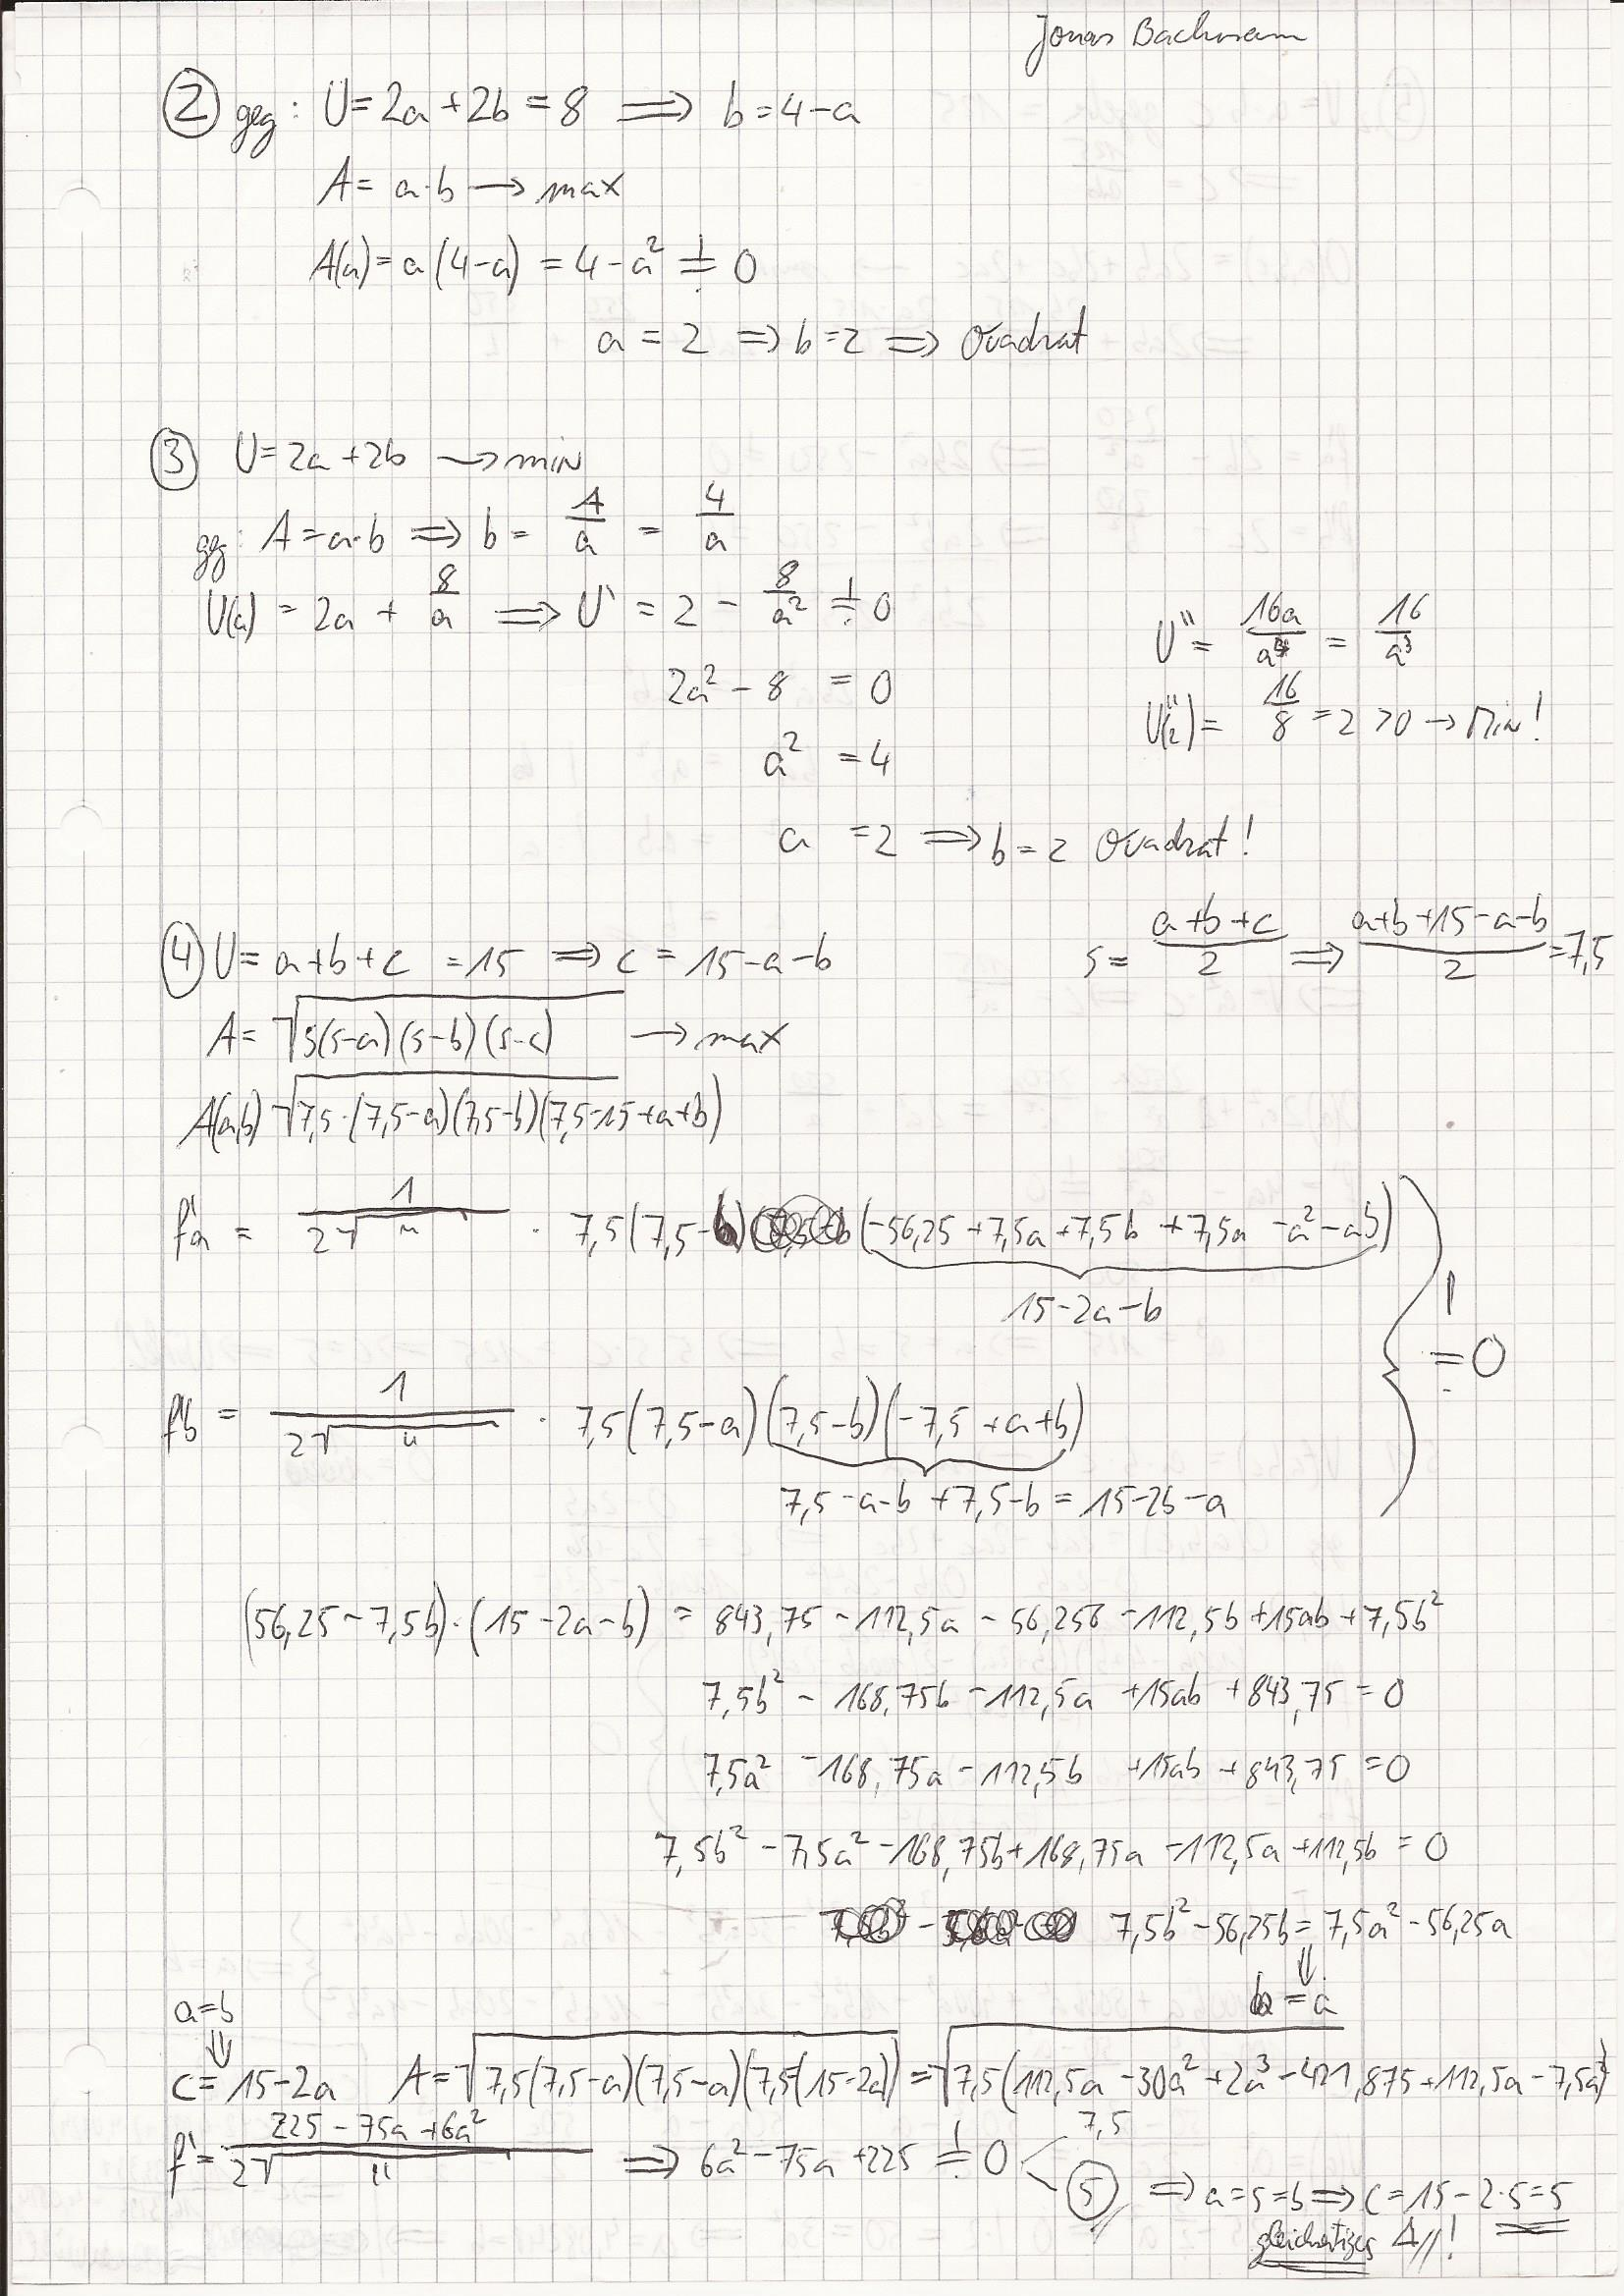 Jonas Bachmann
② geg: U = 2a + 2b = 8 ⟹ b = 4 - a
A = a·b → max
A(a) = a(4-a) = 4 - a² != 0
a = 2 ⇒ b = 2 ⇒ Quadrat
③ U = 2a + 2b → min
geg: A = a·b ⟹ b = A/a = 4/a
U(a) = 2a + 8/a ⟹ U' = 2 - 8/a² != 0
U'' = 16a/a⁴ = 16/a³
2a² - 8 = 0
U''(2) = 16/8 = 2 > 0 → Min!
a² = 4
a = 2 ⟹ b = 2 Quadrat!
④ U = a + b + c = 15 ⟹ c = 15 - a - b
s = (a+b+c)/2 ⟹ (a+b+15-a-b)/2 = 7,5
A = √(s(s-a)(s-b)(s-c)) → max
A(a,b) √(7,5·(7,5-a)(7,5-b)(7,5-15+a+b))
f'a = 1/(2√ " ) · 7,5(7,5-b) (-56,25 + 7,5a + 7,5b + 7,5a - a² - ab)
15 - 2a - b
!= 0
f'b = 1/(2√ " ) · 7,5(7,5-a)(7,5-b)(-7,5 + a + b)
7,5 - a - b + 7,5 - b = 15 - 2b - a
(56,25 - 7,5b)·(15 - 2a - b) = 843,75 - 112,5a - 56,25b - 112,5b + 15ab + 7,5b²
7,5b² - 168,75b - 112,5a + 15ab + 843,75 = 0
7,5a² - 168,75a - 112,5b + 15ab + 843,75 = 0
7,5b² - 7,5a² - 168,75b + 168,75a - 112,5a + 112,5b = 0
7,5b² - 56,25b = 7,5a² - 56,25a
⇓
b = a
a = b
⇓
c = 15 - 2a A = √(7,5(7,5-a)(7,5-a)(7,5-(15-2a))) = √(7,5(112,5a - 30a² + 2a³ - 421,875 + 112,5a - 7,5a²))
f' = (225 - 75a + 6a²)/(2√ " ) ⟹ 6a² - 75a + 225 != 0 < 7,5
5 ⟹ a = 5 = b ⟹ c = 15 - 2·5 = 5
gleichseitiges Δ!